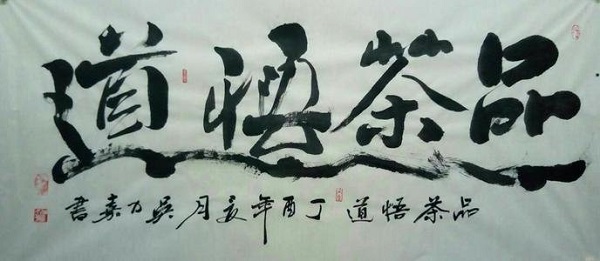 品茶悟道
品茶悟道丁酉年亥月吴力嘉書